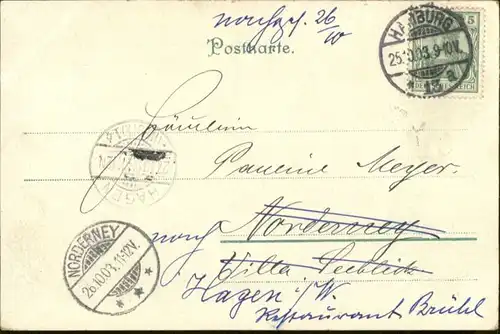 nachges. 26/10
Postkarte.
HAMBURG
25.10.03. 9-10V.
* 13 a
5
Fräulein
Pauline Meyer.
HAGEN
Norderney
nach
Villa Seeblick
NORDERNEY
26.10.03. 11-12V.
Hagen i/W.
Restaurant Brühl